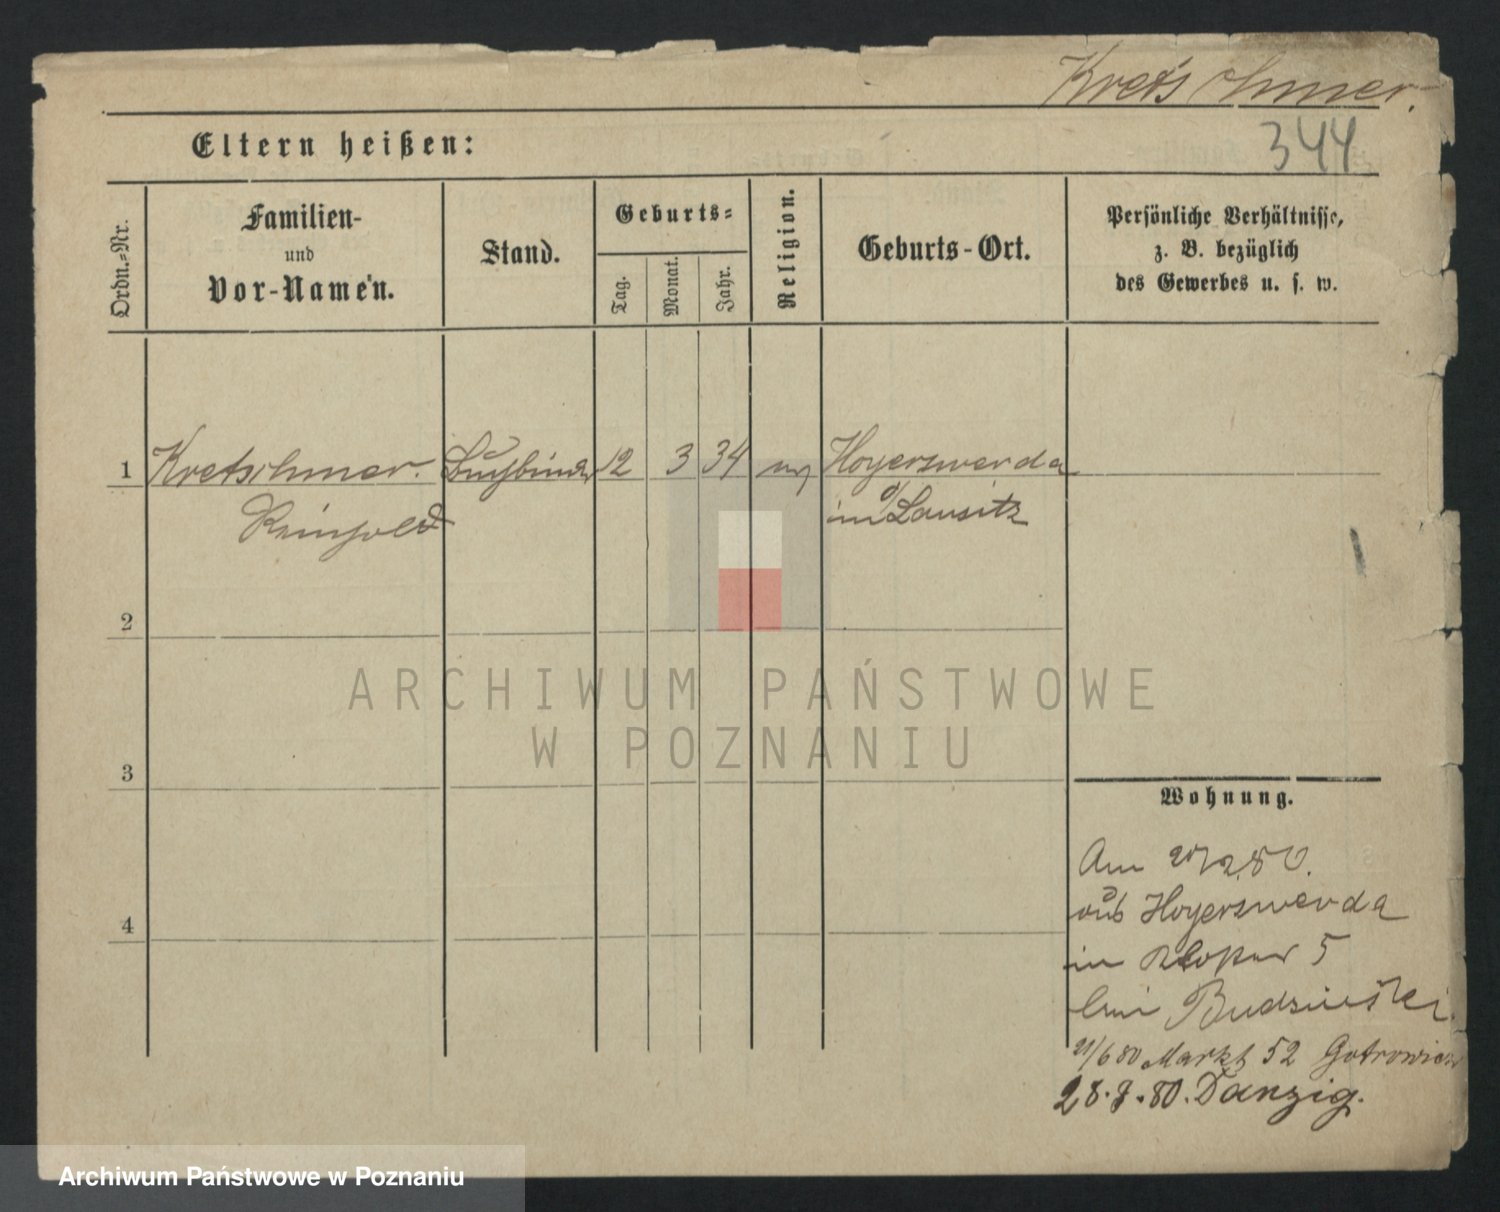 Kretschmer.
344
Eltern heißen:
Ordn.-Nr.
Familien-
und
Vor-Namen.
Stand.
Geburts-
Tag.
Monat.
Jahr.
Religion.
Geburts-Ort.
Persönliche Verhältnisse,
z. B. bezüglich
des Gewerbes u. s. w.
1 Kretschmer. Buchbinder 12 3 34 ev Hoyerswerda
Reinhold in Lausitz
2
3
4
Wohnung.
Am 2.80.
aus Hoyerswerda
in 5
bei Budzinski
/6 80 Markt 52
28. .80. Danzig.
ARCHIWUM PAŃSTWOWE
W POZNANIU
Archiwum Państwowe w Poznaniu